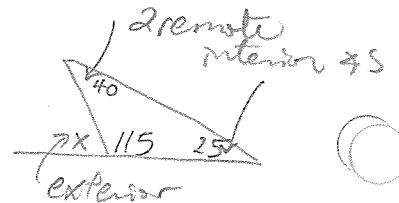 2 remote
interior ∡s
40
x 115 25
exterior